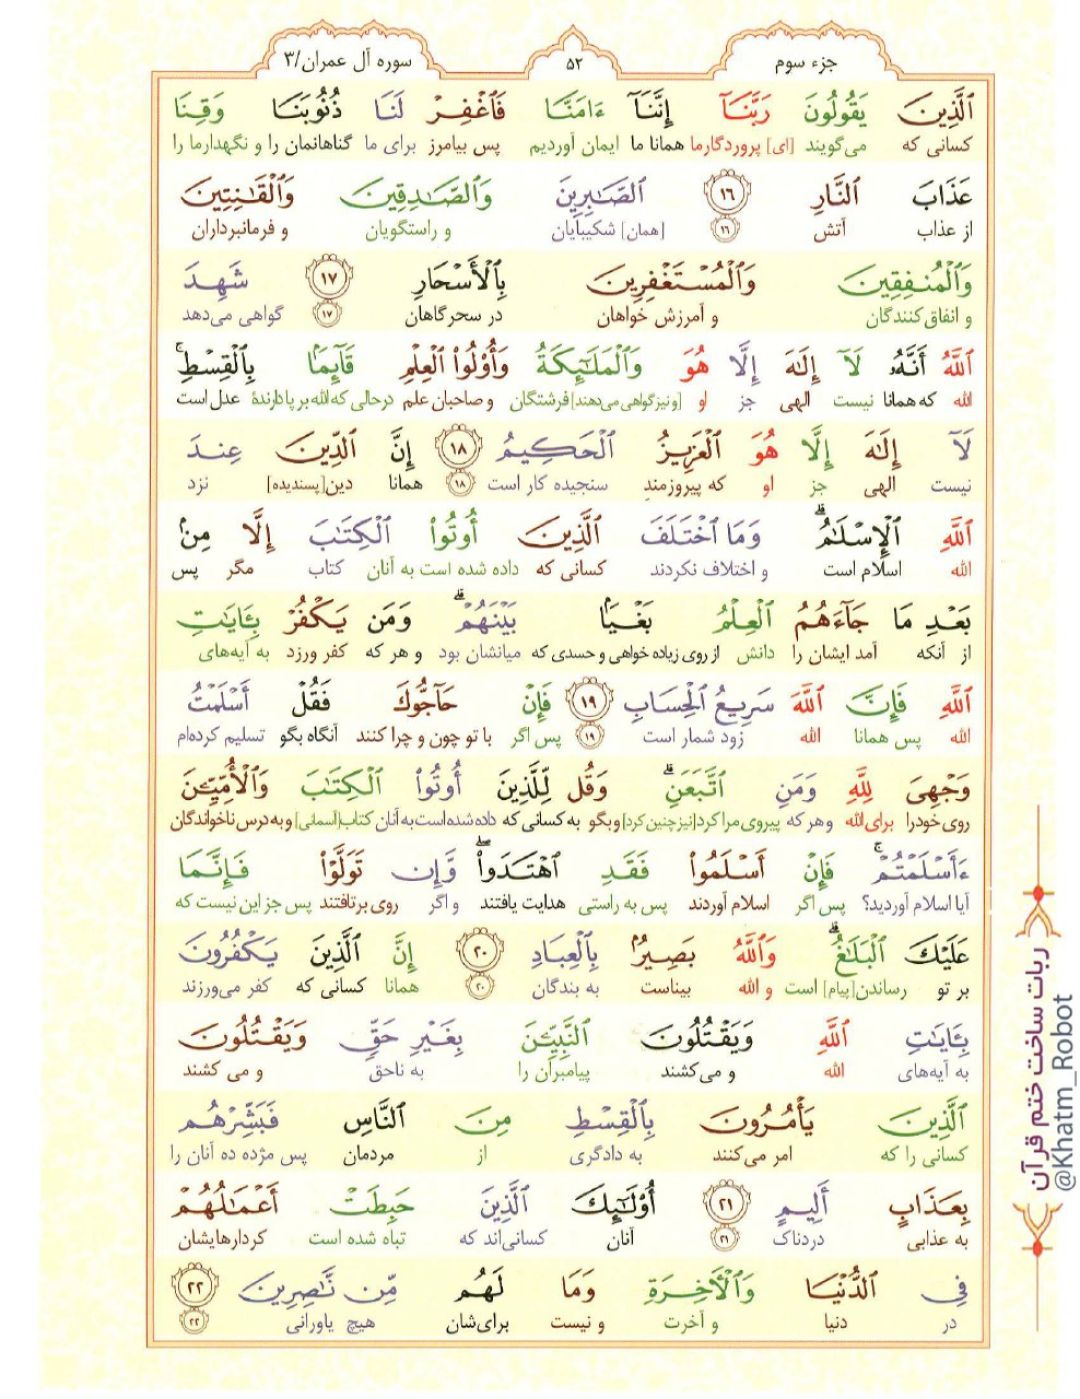 جزء سوم
۵۲
سوره آل عمران/۳
ٱلَّذِينَ يَقُولُونَ رَبَّنَآ إِنَّنَآ ءَامَنَّا فَٱغْفِرْ لَنَا ذُنُوبَنَا وَقِنَا
کسانی که می‌گویند [ای] پروردگارما همانا ما ایمان آوردیم پس بیامرز برای ما گناهانمان را و نگهدارما را
عَذَابَ ٱلنَّارِ ١٦ ٱلصَّـٰبِرِينَ وَٱلصَّـٰدِقِينَ وَٱلْقَـٰنِتِينَ
از عذاب آتش ۱۶ [همان] شکیبایان و راستگویان و فرمانبرداران
وَٱلْمُنفِقِينَ وَٱلْمُسْتَغْفِرِينَ بِٱلْأَسْحَارِ ١٧ شَهِدَ
و انفاق‌کنندگان و آمرزش خواهان در سحرگاهان ۱۷ گواهی می‌دهد
ٱللَّهُ أَنَّهُۥ لَآ إِلَـٰهَ إِلَّا هُوَ وَٱلْمَلَـٰٓئِكَةُ وَأُو۟لُوا۟ ٱلْعِلْمِ قَآئِمًۢا بِٱلْقِسْطِ ۚ
الله که همانا نیست الهی جز او [و نیز گواهی می‌دهند] فرشتگان و صاحبان علم درحالی که الله بر پا دارندهٔ عدل است
لَآ إِلَـٰهَ إِلَّا هُوَ ٱلْعَزِيزُ ٱلْحَكِيمُ ١٨ إِنَّ ٱلدِّينَ عِندَ
نیست الهی جز او که پیروزمند سنجیده کار است ۱۸ همانا دین[پسندیده] نزد
ٱللَّهِ ٱلْإِسْلَـٰمُ ۗ وَمَا ٱخْتَلَفَ ٱلَّذِينَ أُوتُوا۟ ٱلْكِتَـٰبَ إِلَّا مِنۢ
الله اسلام است و اختلاف نکردند کسانی که داده شده است به آنان کتاب مگر پس
بَعْدِ مَا جَآءَهُمُ ٱلْعِلْمُ بَغْيًۢا بَيْنَهُمْ ۗ وَمَن يَكْفُرْ بِـَٔايَـٰتِ
از آنکه آمد ایشان را دانش از روی زیاده خواهی و حسدی که میانشان بود و هر که کفر ورزد به آیه‌های
ٱللَّهِ فَإِنَّ ٱللَّهَ سَرِيعُ ٱلْحِسَابِ ١٩ فَإِنْ حَآجُّوكَ فَقُلْ أَسْلَمْتُ
الله پس همانا الله زود شمار است ۱۹ پس اگر با تو چون و چرا کنند آنگاه بگو تسلیم کرده‌ام
وَجْهِىَ لِلَّهِ وَمَنِ ٱتَّبَعَنِ ۗ وَقُل لِّلَّذِينَ أُوتُوا۟ ٱلْكِتَـٰبَ وَٱلْأُمِّيِّـۧنَ
روی خودرا برای الله وهر که پیروی مرا کرد[نیز چنین کرد] و بگو به کسانی که داده شده است به آنان کتاب[آسمانی] و به درس ناخواندگان
ءَأَسْلَمْتُمْ ۚ فَإِنْ أَسْلَمُوا۟ فَقَدِ ٱهْتَدَوا۟ ۖ وَّإِن تَوَلَّوْا۟ فَإِنَّمَا
آیا اسلام آوردید؟ پس اگر اسلام آوردند پس به راستی هدایت یافتند و اگر روی برتافتند پس جز این نیست که
عَلَيْكَ ٱلْبَلَـٰغُ ۗ وَٱللَّهُ بَصِيرٌۢ بِٱلْعِبَادِ ٢٠ إِنَّ ٱلَّذِينَ يَكْفُرُونَ
بر تو رساندن[پیام] است و الله بیناست به بندگان ۲۰ همانا کسانی که کفر می‌ورزند
بِـَٔايَـٰتِ ٱللَّهِ وَيَقْتُلُونَ ٱلنَّبِيِّـۧنَ بِغَيْرِ حَقٍّ وَيَقْتُلُونَ
به آیه‌های الله و می‌کشند پیامبران را به ناحق و می کشند
ٱلَّذِينَ يَأْمُرُونَ بِٱلْقِسْطِ مِنَ ٱلنَّاسِ فَبَشِّرْهُم
کسانی را که امر می‌کنند به دادگری از مردمان پس مژده ده آنان را
بِعَذَابٍ أَلِيمٍ ٢١ أُو۟لَـٰٓئِكَ ٱلَّذِينَ حَبِطَتْ أَعْمَـٰلُهُمْ
به عذابی دردناک ۲۱ آنان کسانی‌اند که تباه شده است کردارهایشان
فِى ٱلدُّنْيَا وَٱلْـَٔاخِرَةِ وَمَا لَهُم مِّن نَّـٰصِرِينَ ٢٢
در دنیا و آخرت و نیست برای‌شان هیچ یاورانی ۲۲
ربات ساخت ختم قرآن
@Khatm_Robot